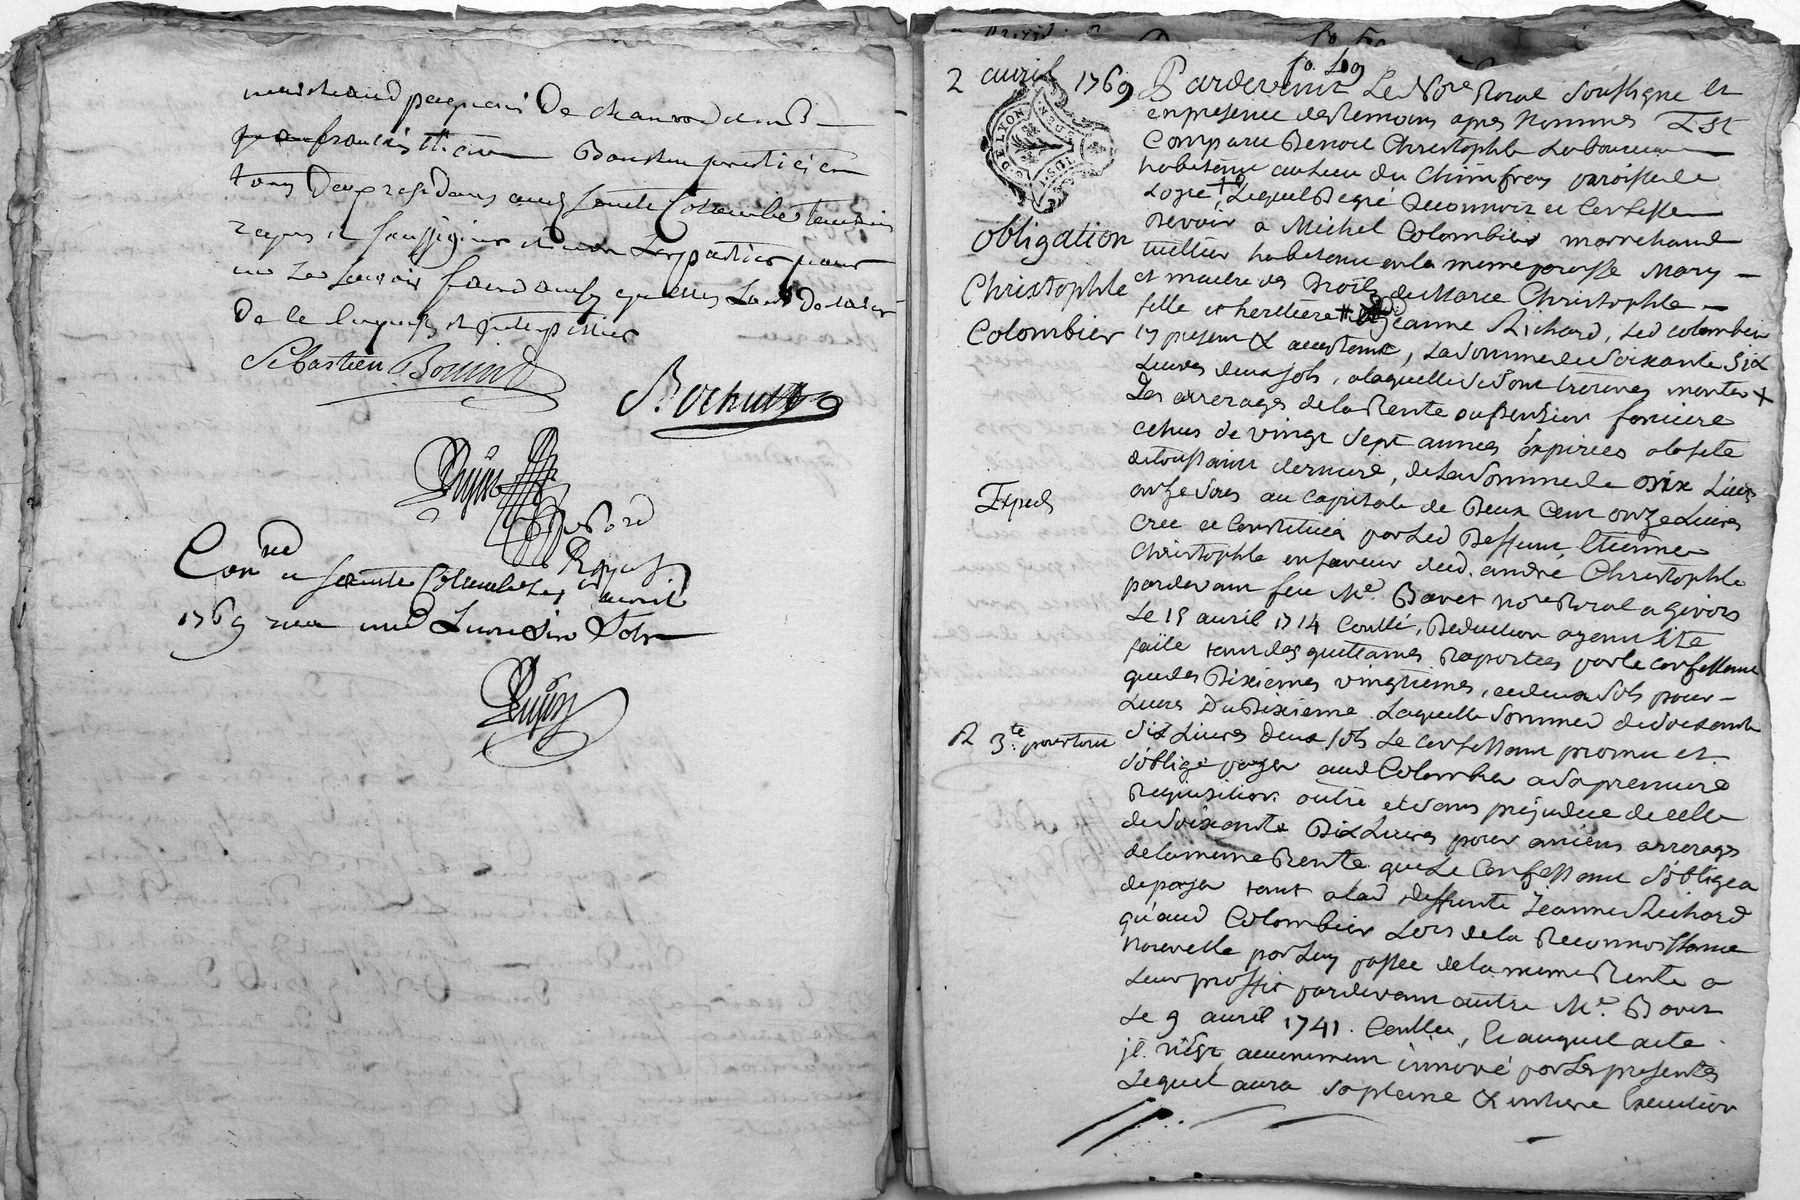 marchand
francois
tous deux residans aud sainte Colombe temoins
requis et soussignés et non les parties pour
ne le savoir faire
De ce enquis et interpellées
Sebastien
Dujas
Con. a sainte Colombe le avril
1769 recu une Livre six sols
Dujas
fo. 69
2 avril 1769
G. DE LYON
obligation
Christophle
Colombier
Exped
R 3.te pour tout
Pardevant Le No.re Roral Soussigne et
en presence des temoins apres Nommes Est
Comparu Benoit Christophle Laboureur
habitant au lieu du Chinfrey paroisse de
Loyre, Lequel De gré Reconnoit et Confesse
Devoir a Michel Colombier marchand
tuillier habitant en la meme paroisse Mary
et maitre des Droits de Marie Christophle
fille et heretiere Jeanne Richard, Led Colombier
yy present & acceptant, La Somme de Soixante Six
Livres deux sols, a laquelle se sont trouvés monter
Les arrerages de la Rente ou Pension fonciere
echus de vingt Sept années Expirees a la fete
de toussaint derniere, de La Somme de Livres
onze Sous au capital de Deux Cent onze Livres
créé et Constituéé par Led Deffunt Etienne
Christophle en faveur dud. andré Christophle
pardevant feu Me. Bovet No.re Roral a Givors
Le 15 avril 1714 Conllé, Deduction ayant été
faite tant des quittances Raportées par le confessant
que des Dixiemes vingtiemes, et deux sols pour
Livres Du Dixieme Laquelle Somme de Soixante
Six Livres deux sols Le Confessant promet et
S'oblige payer aud Colombier a Sa premiere
Requisition outre et Sans prejudice de celle
de Soixante Dix Livres pour anciens arrerages
de la meme Rente que Le Confessant S'obligea
de payer tant a lad deffunte Jeanne Richard
qu'aud Colombier Lors de la Reconnoissance
Nouvelle par Luy passée de la meme Rente a
Leur proffit pardevant autre Me. Bovet
Le 9 avril 1741. Conllée, et auquel acte
jl n'est aucunement innové par les presentes
Lequel aura Sa pleine & entiere Execution